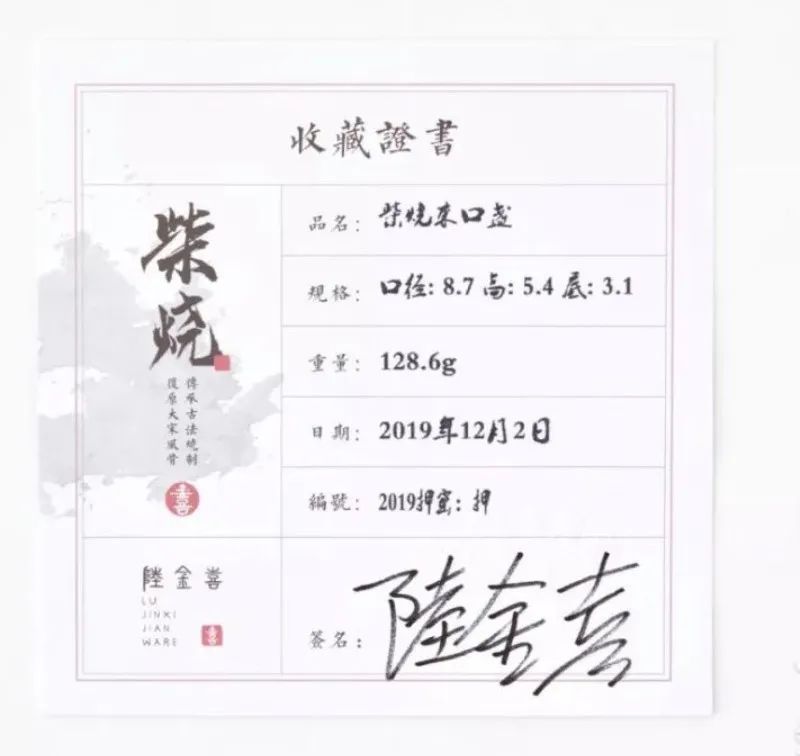 收藏證書
柴烧
傳承古法燒制
復原大宋風骨
喜
品名：柴燒束口盏
規格：口径: 8.7 高: 5.4 底: 3.1
重量：128.6g
日期：2019年12月2日
編號：2019押窯: 押
陸金喜
LU
JINXI
JIAN
WARE
喜
簽名：陸金喜